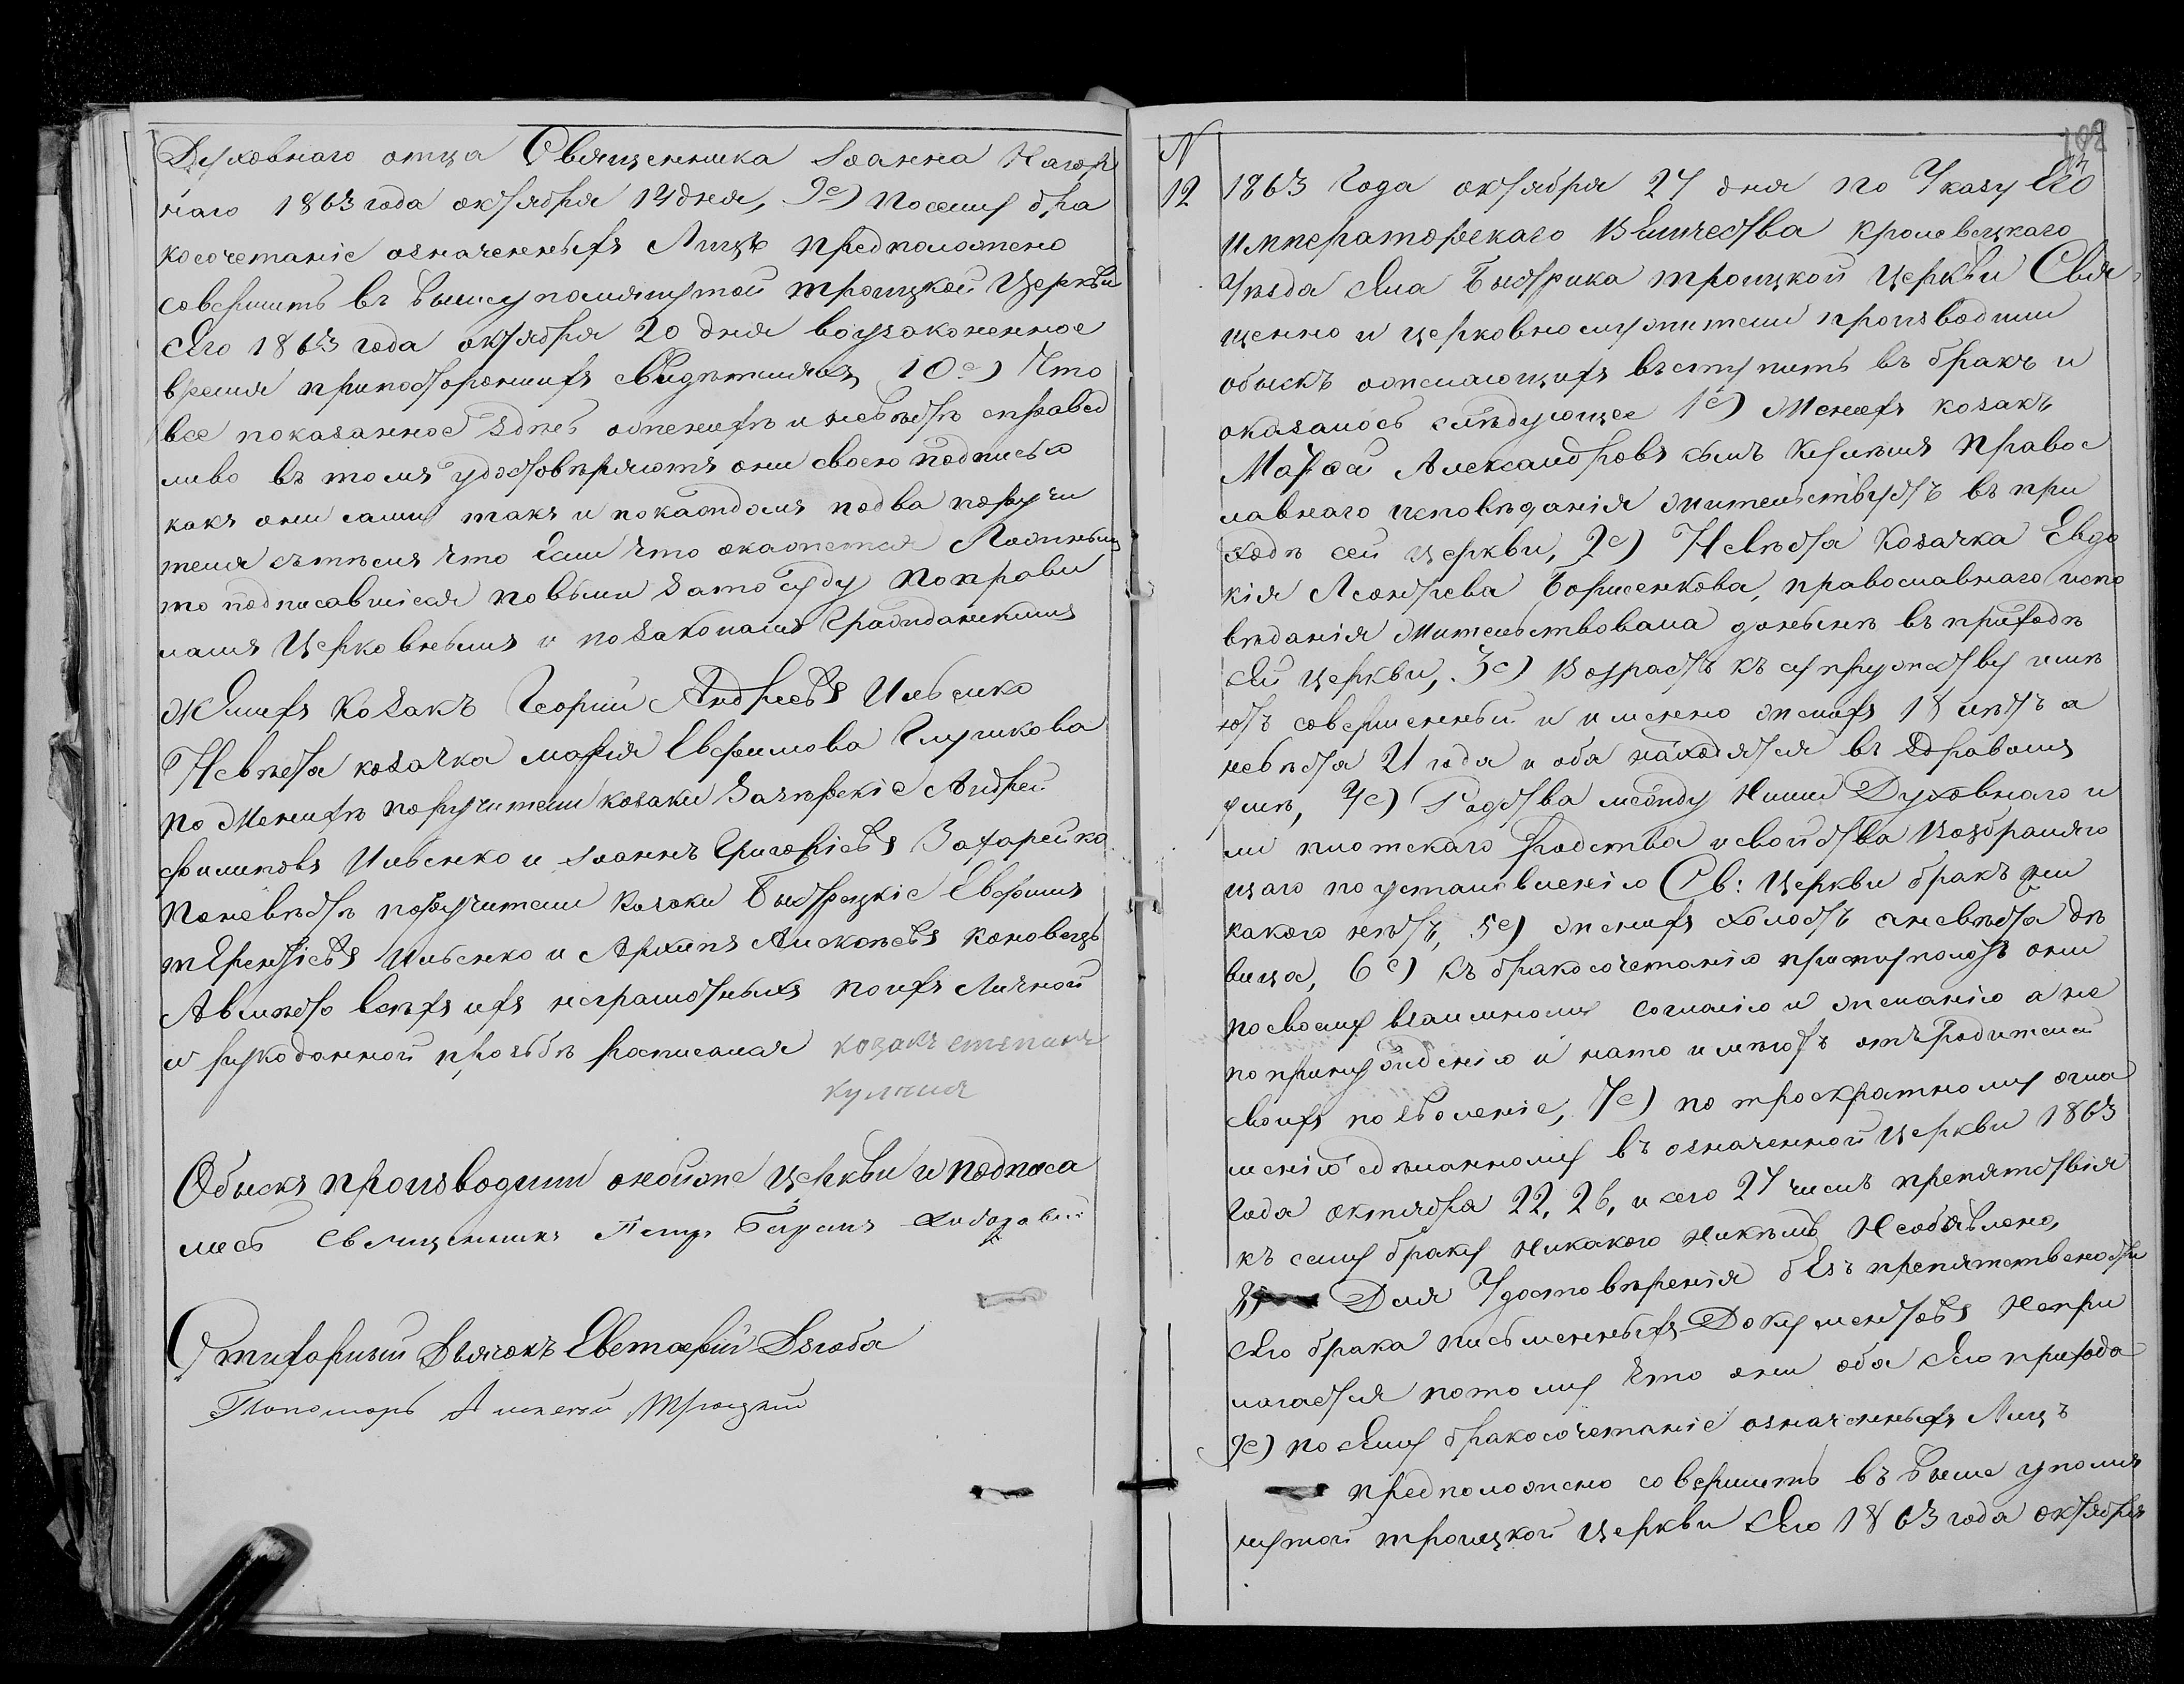 Духовнаго отца Священника Іоанна Нагор
наго 1863 года октября 14 дня, 9е) по сему бра
косочетаніе означенныхъ Лицъ предположено
совершить въ вышеупомянутой троицкой Церкви
сего 1863 года октября 20 дня воузаконенное
время припостороннихъ свидѣтеляхъ, 10е) Что
все показанное здѣсь оженихѣ и невѣстѣ справед
ливо въ томъ удостовѣряютъ они своею подписью
какъ они сами такъ и покаждомъ подва поручи
теля сътѣмъ что Если что окажется Ложнымъ
то подписавшіеся повинны затосуду Поправи
ламъ Церковнымъ и позаконамъ Гражданскимъ
жЕнихъ Козакъ Георгий Андреевъ Ильенко
Невѣста козачка марія Евфимова Глушкова
по Женихѣ поручители козаки Андрей
филиповъ Ильенко и іоаннъ Григоріевъ Захарейко
Поневѣстѣ поручители Козаки Быстрицкіе Евфимъ
тЕрентіевъ Ильенко и Архипъ Коновецъ
Авмѣсто всѣхъ ихъ неграмотныхъ поихъ Личной
и рукоданной прозьбѣ расписался козакъ степанъ
Обыскъ производили онойже Церкви и подписа
лись Священникъ Петръ
Стихарный Дьячокъ Евстафій Дзюба
Пономарь Алексѣй Троцкий
102
N
12 1863 Года октября 27 дня по Указу Его
императорскаго вЕличества кролевецкаго
Уѣзда сЕла Быстрика троицкой церкви Свя
щенно и церковнослужители производили
обыскъ ожелающихъ въступить въ бракъ и
оказалось слѣдующее 1е) Женихъ козакъ
Александровъ сынъ Правос
лавнаго исповѣданія жительствуетъ въ при
ходѣ сей церкви, 2е) Невѣста Козачка Евдо
кія Леонтіева Борисенкова, православнаго испо
вѣданія жительствовала донынѣ въ приходѣ
сЕй церкви, 3е) возрастъ къ супружеству имѣ
ютъ совершенный и именно женихъ 18 лѣтъ а
невѣста 21 года и оба находятся въ здравомъ
умѣ, 4е) Родства между Ними Духовнаго и
ли плотскаго родства исвойства возбраняю
щаго поустановленію Св: Церкви бракъ ни
какого нѣтъ, 5е) женихъ холостъ аневѣста дѣ
вица, 6е) къ бракосочетанію приступаютъ они
посвоему взаимному согласію и желанію а не
попринужденію и нато имѣютъ отъродителей
своихъ позволеніе, 7е) по троекратному огла
шенію сдѣланному въ означенной церкви 1863
Года октября 22, 26, и сего 27 числъ препятствія
къ сему браку никакого никѣмъ Необъявлено,
8) Для Удостовѣренія бЕзъпрепятственности
сЕго брака письменныхъ Документовъ Непри
лагается потому что они оба сЕго прихода
9е) по сЕму бракосочетаніе означенныхъ Лицъ
предположено совершить въ выше упомя
нутой троицкой Церкви сЕго 1863 года октября